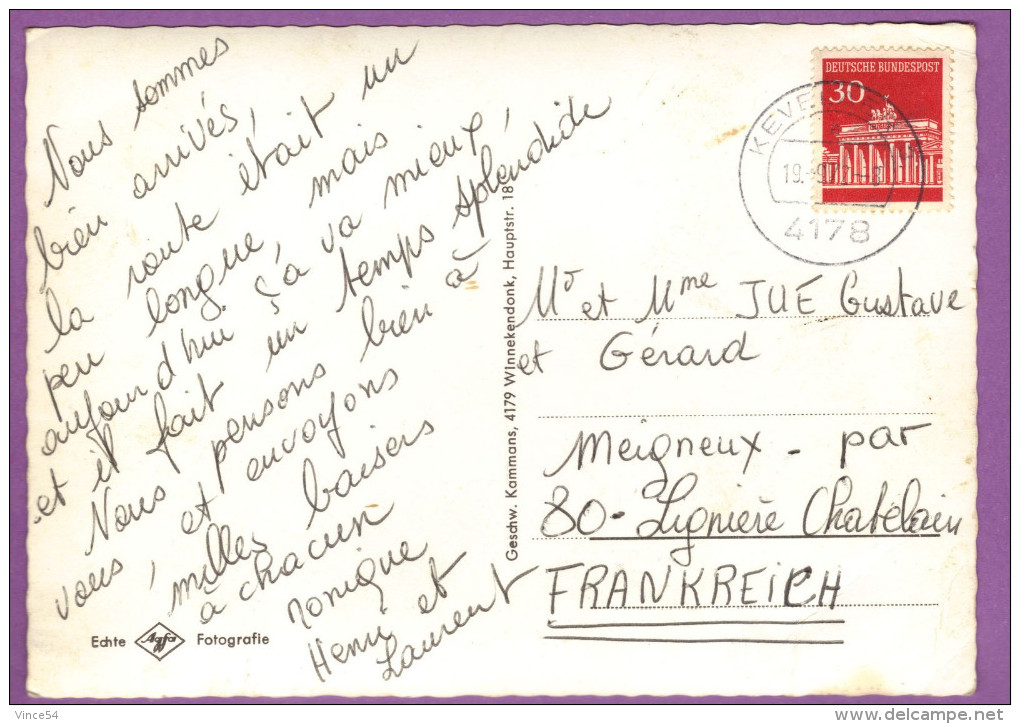 Nous sommes
bien arrivés,
la route était un
peu longue, mais
aujourd'hui ç'a va mieux,
et il fait un temps splendide
Nous pensons bien à
vous, et envoyons
milles baisers
à chacun
Monique
Henri et
Laurent
Echte Agfa Fotografie
Geschw. Kammans, 4179 Winnekendonk, Hauptstr. 18
DEUTSCHE BUNDESPOST
30
4178
Mr et Mme JUE Gustave
et Gérard
Meigneux - par
80 - Lignière Chatelain
FRANKREICH
Vince54